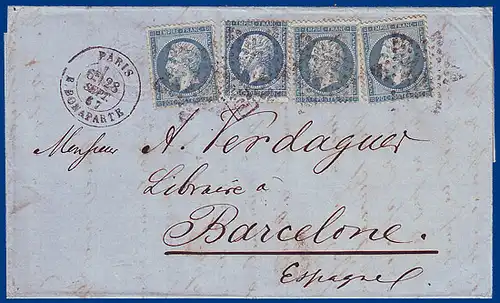 EMPIRE FRANC
EMPIRE FRANC
EMPIRE FRANC
EMPIRE FRANC
PARIS
28
SEPT
67
R. BONAPARTE
Monsieur A. Verdaguer
Libraire à
Barcelone.
Espagne